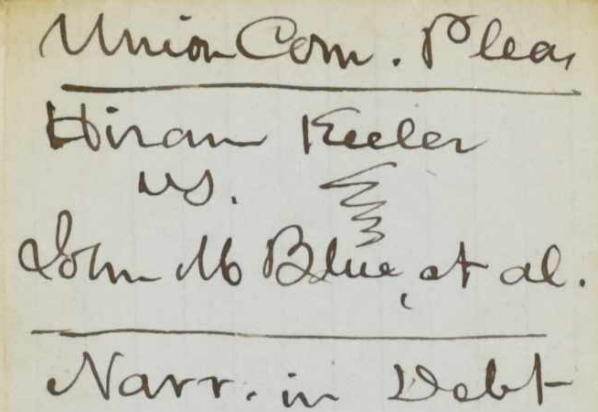 Union Com. Pleas
Hiram Keeler
vs.
John M Blue, et al.
Narr. in Debt